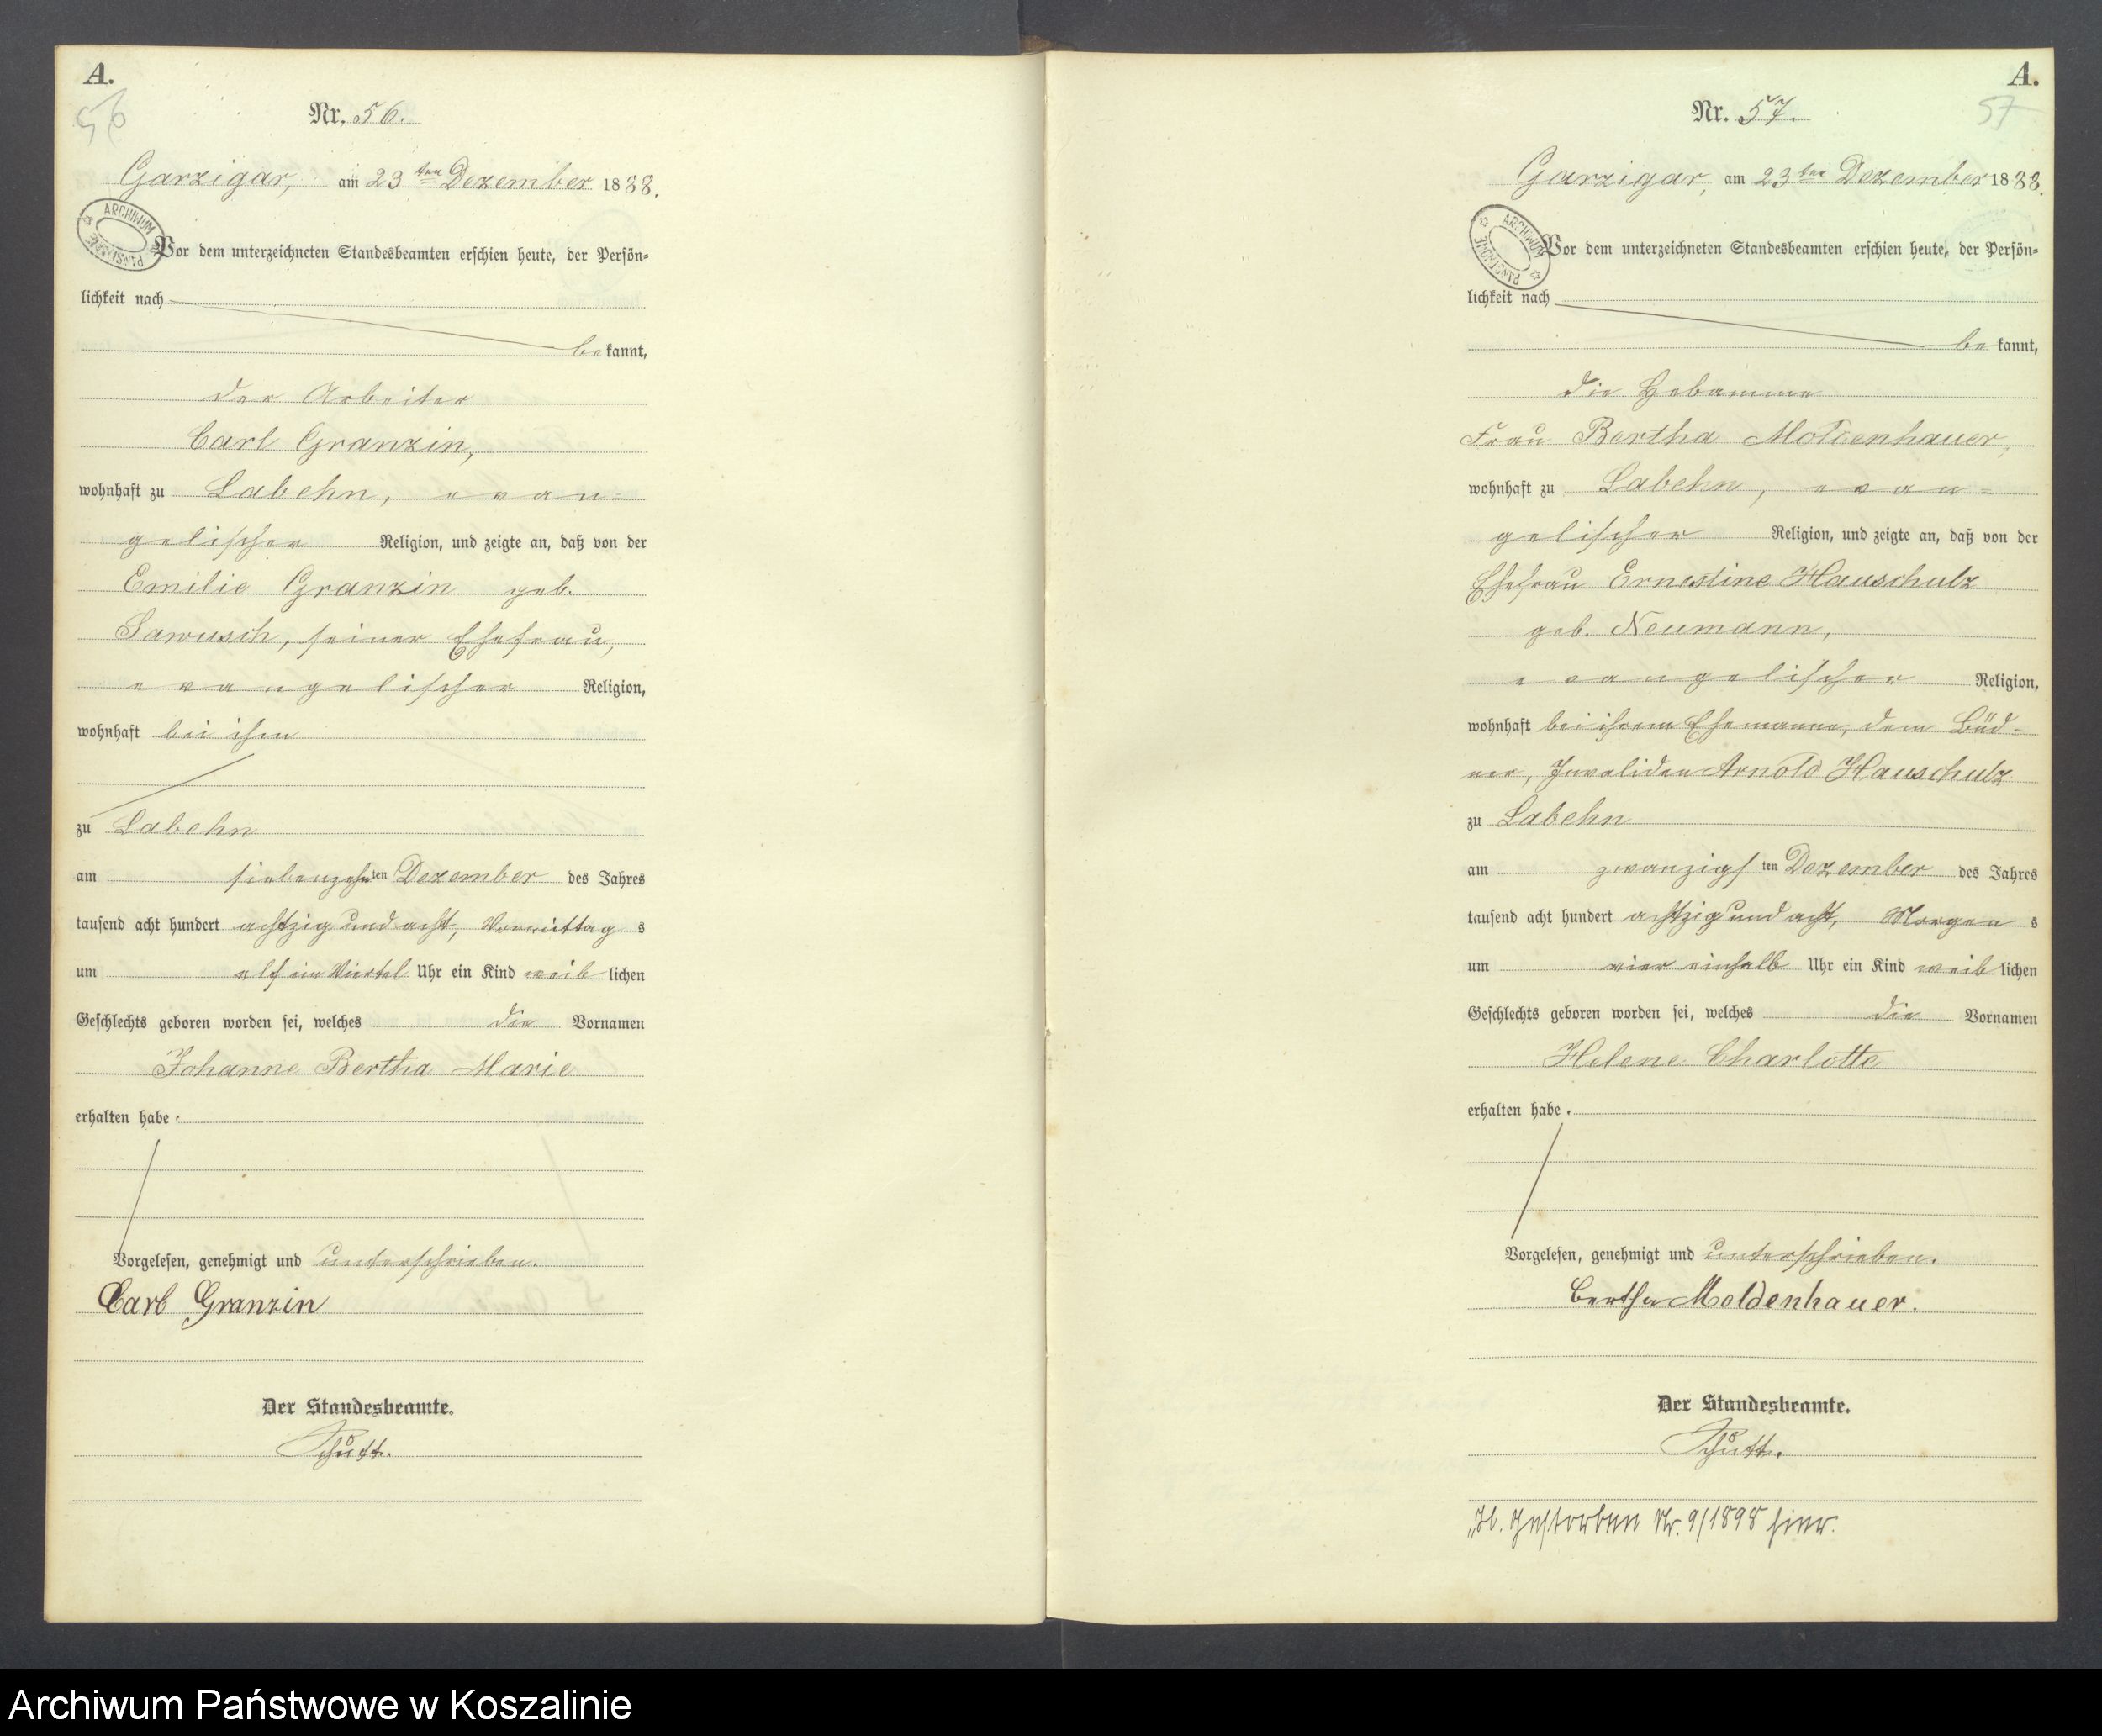 A.
56
Nr. 56.
Garzigar, am 23ten Dezember 1888.
ARCHIWUM PAŃSTWOWE
Vor dem unterzeichneten Standesbeamten erschien heute, der Persön-
lichkeit nach
bekannt,
der Arbeiter
Carl Granzin,
wohnhaft zu Labehn, evan-
gelischer Religion, und zeigte an, daß von der
Emilie Granzin geb.
Sawusch, seiner Ehefrau,
evangelischer Religion,
wohnhaft bei ihm
zu Labehn
am siebenzehnten Dezember des Jahres
tausend acht hundert achtzig und acht, Vormittags
um elf ein Viertel Uhr ein Kind weiblichen
Geschlechts geboren worden sei, welches die Vornamen
Johanne Bertha Marie
erhalten habe.
Vorgelesen, genehmigt und unterschrieben.
Carl Granzin
Der Standesbeamte.
Schütt.
A.
57
Nr. 57.
Garzigar, am 23ten Dezember 1888.
ARCHIWUM PAŃSTWOWE
Vor dem unterzeichneten Standesbeamten erschien heute, der Persön-
lichkeit nach
bekannt,
die Hebamme
Frau Bertha Moldenhauer,
wohnhaft zu Labehn, evan-
gelischer Religion, und zeigte an, daß von der
Ehefrau Ernestine Hauschulz
geb. Neumann,
evangelischer Religion,
wohnhaft bei ihrem Ehemanne, dem Büd-
ner, Invaliden Arnold Hauschulz
zu Labehn
am zwanzigsten Dezember des Jahres
tausend acht hundert achtzig und acht, Morgens
um vier einhalb Uhr ein Kind weiblichen
Geschlechts geboren worden sei, welches die Vornamen
Helene Charlotte
erhalten habe.
Vorgelesen, genehmigt und unterschrieben.
Bertha Moldenhauer.
Der Standesbeamte.
Schütt.
gestorben Nr. 9/1898 hier.
Archiwum Państwowe w Koszalinie